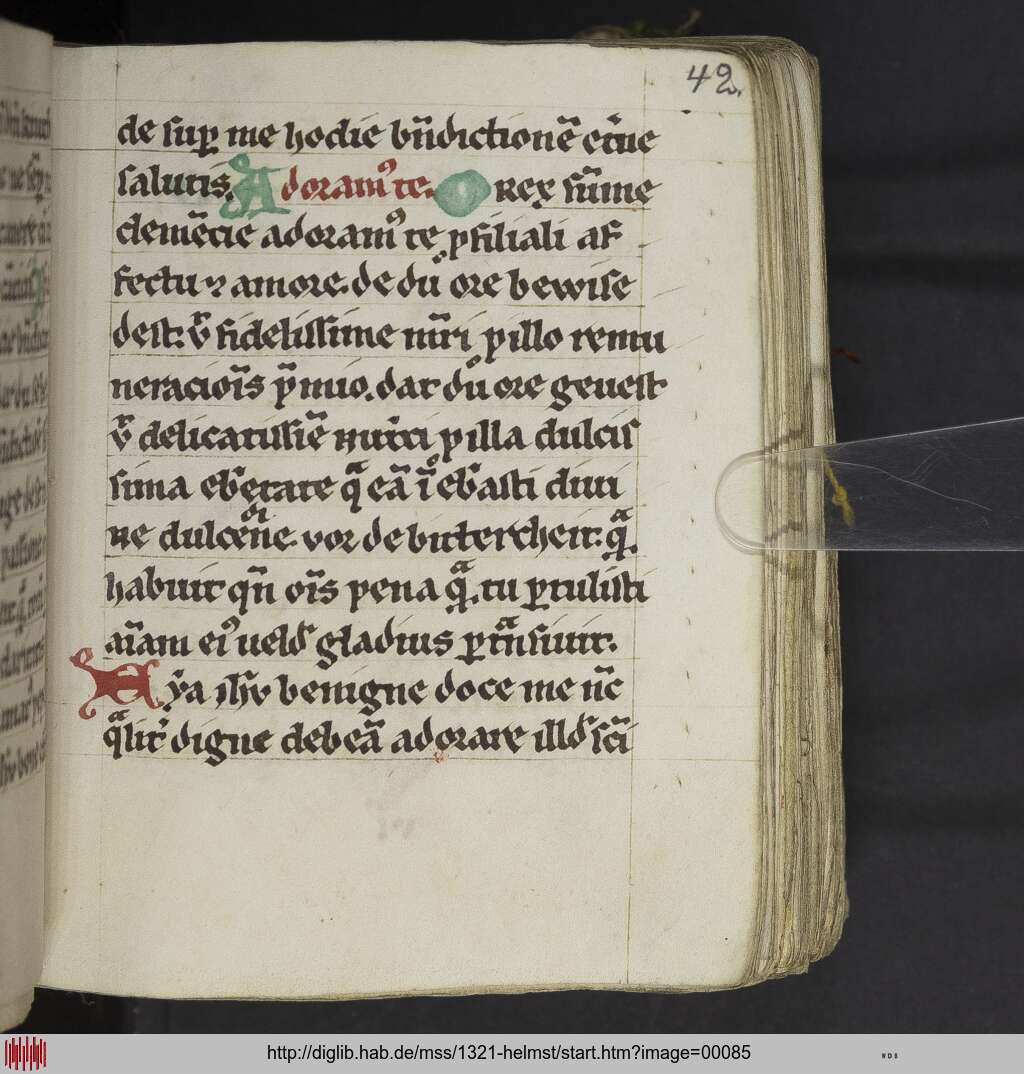 42.
de suꝑ me hodie bn̄dictionē et̾ne
salutis. Adoramꝰ te. O Rex sūme
clemēcie adoramꝰ te ꝓ filiali af
fectu ⁊ amore. de dů ore bewise
dest: v̾ fidelissime nr̄i pillo remu
neracioīs p̄mio. dat dů ore geuest
v̾ delicatissiē nut̾ci pilla dulcis
sima eb̾etate qͣ eā īeb̾asti diui
ne dulcēnͦie vor de bittercheit: qͣ.
habuit qn̄ oīs pena qͣ. tu ꝑtulisti
aīam eiꝰ uelđ gladius ꝑtͣnsiuit.
Eya ih̄u benigne doce me nc̄
qͣlit̾ digne debeā adorare illđ sc̄i
http://diglib.hab.de/mss/1321-helmst/start.htm?image=00085